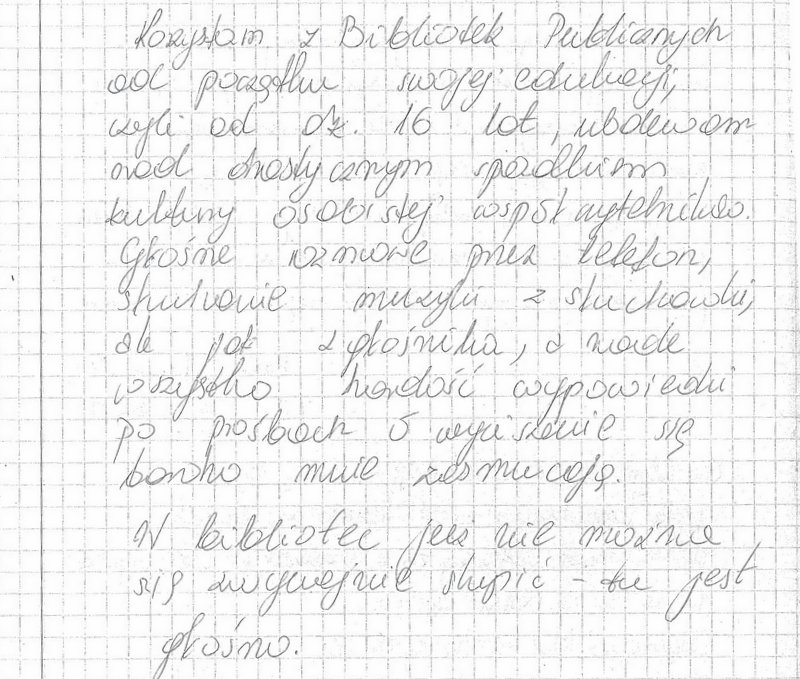 Korzystam z Bibliotek Publicznych
od początku swojej edukacji,
czyli od ok. 16 lat, ubolewam
nad drastycznym spadkiem
kultury osobistej współczytelników.
Głośne rozmowe przez telefon,
słuchanie muzyki z słuchawki,
ale jak z głośnika, a nade
wszystko hardość wypowiedzi
po prośbach o wyciszenie się
bardzo mnie zasmucają.
W bibliotec już nie można
się zwyczajnie skupić - tu jest
głośno.